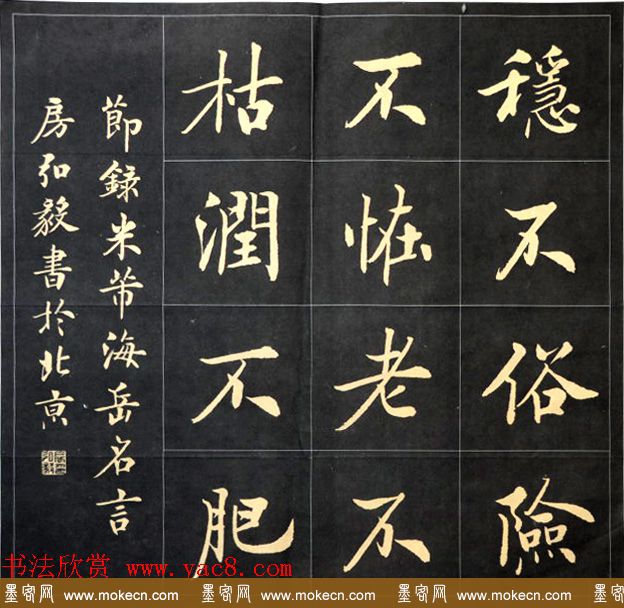 穩不俗險
不恠老不
枯潤不肥
節錄米芾海岳名言
房弘毅書於北亰
书法欣赏 www.yac8.com
墨客网 www.mokecn.com 墨客网 www.mokecn.com 墨客网 www.mokecn.com